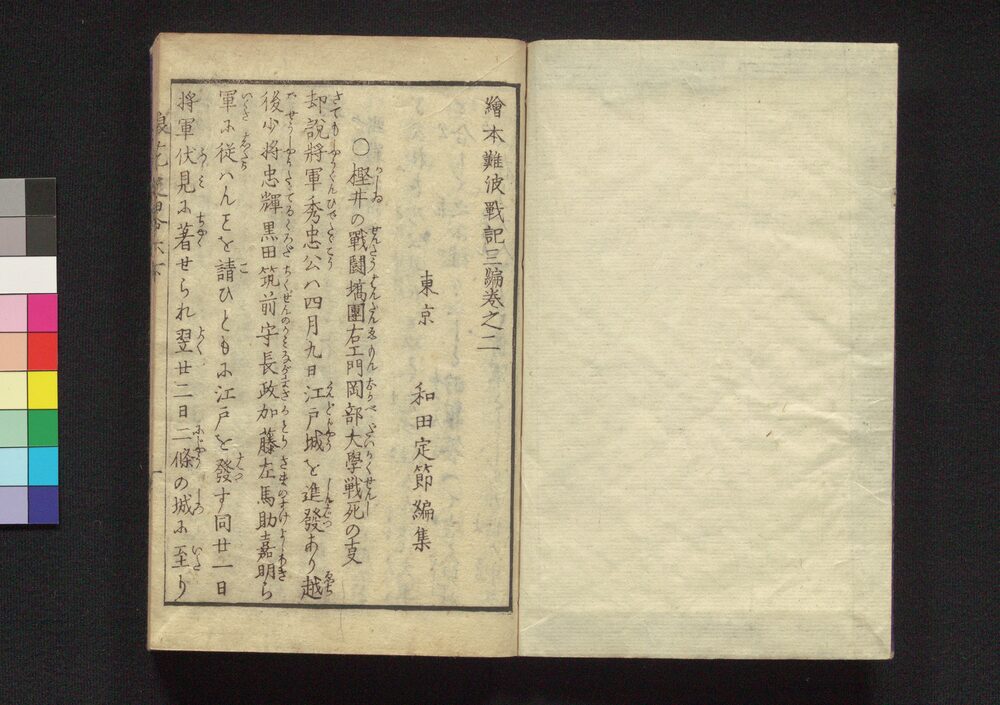 繪本難波戰記三編卷之二
東京 和田定節編集
〇樫井の戰鬪塙團右エ門岡部大學戦死の叓
却說將軍秀忠公ハ四月九日江戸城を進發あり越
後少將忠輝黒田筑前守長政加藤左馬助嘉明ら
軍に従ハんことを請ひともに江戸を發す同廿一日
將軍伏見に著せられ翌廿二日二條の城に至り